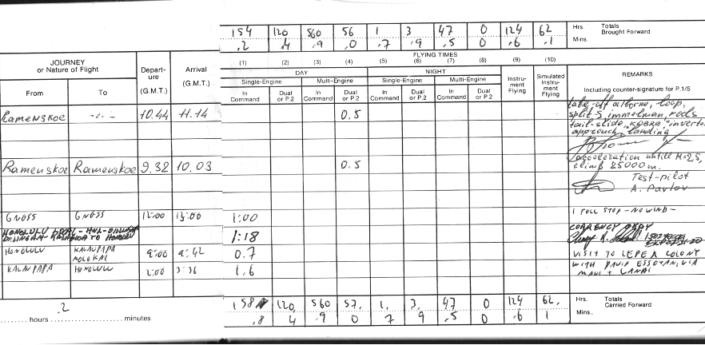 154 120 560 56 1 3 47 0 124 62 Hrs. Totals
Brought Forward
.2 .4 .9 .0 .7 .9 .5 0 .6 .1 Mins.
JOURNEY
or Nature of Flight
Depart-
ure
(G.M.T.)
Arrival
(G.M.T.)
From To
FLYING TIMES
(1) (2) (3) (4) (5) (6) (7) (8) (9) (10)
DAY NIGHT
Single-Engine Multi-Engine Single-Engine Multi-Engine
In Command Dual or P.2 In Command Dual or P.2 In Command Dual or P.2 In Command Dual or P.2
Instru-
ment
Flying
Simulated
Instru-
ment
Flying
REMARKS
Including counter-signature for P.1/S
Ramenskoe -·- 10.44 11.14 0.5
take-off airborne, loop,
split-S, immelman, rools
tail-slide, "кобра" invert.
approach, landing
Ramenskoe Ramenskoe 9.32 10.03 0.5
climb 25000 m.
Test-pilot
A. Pavlov
GNOSS GNOSS 12:00 13:00 1:00
1 FULL STOP - NO WIND -
1:18
HONOLULU KALAUPAPA MOLOKAI 9:00 9:42 0.7
VISIT TO LEPER COLONY
KALAUPAPA HONOLULU 2:00 3:36 1.6
WITH DAVID VIA
MAUI + LANAI
158 120 560 57 1 3 47 0 124 62 Hrs. Totals
Carried Forward
.8 4 .9 0 7 9 .5 0 .6 1 Mins.
.2
hours minutes